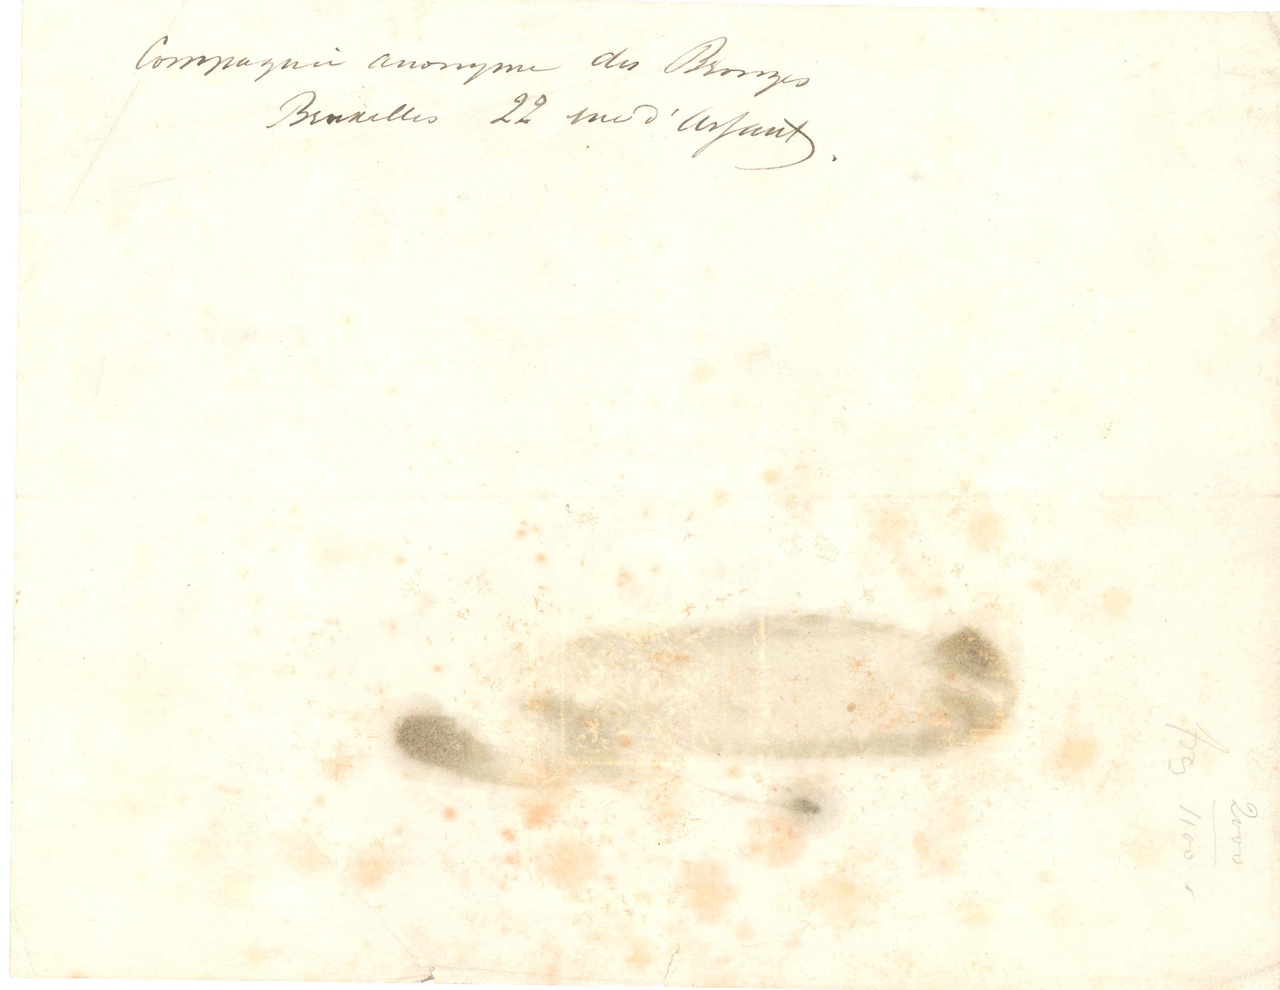 Compagnie anonyme des Bronzes
Bruxelles 22 rue d'Assaut.
2000
1100